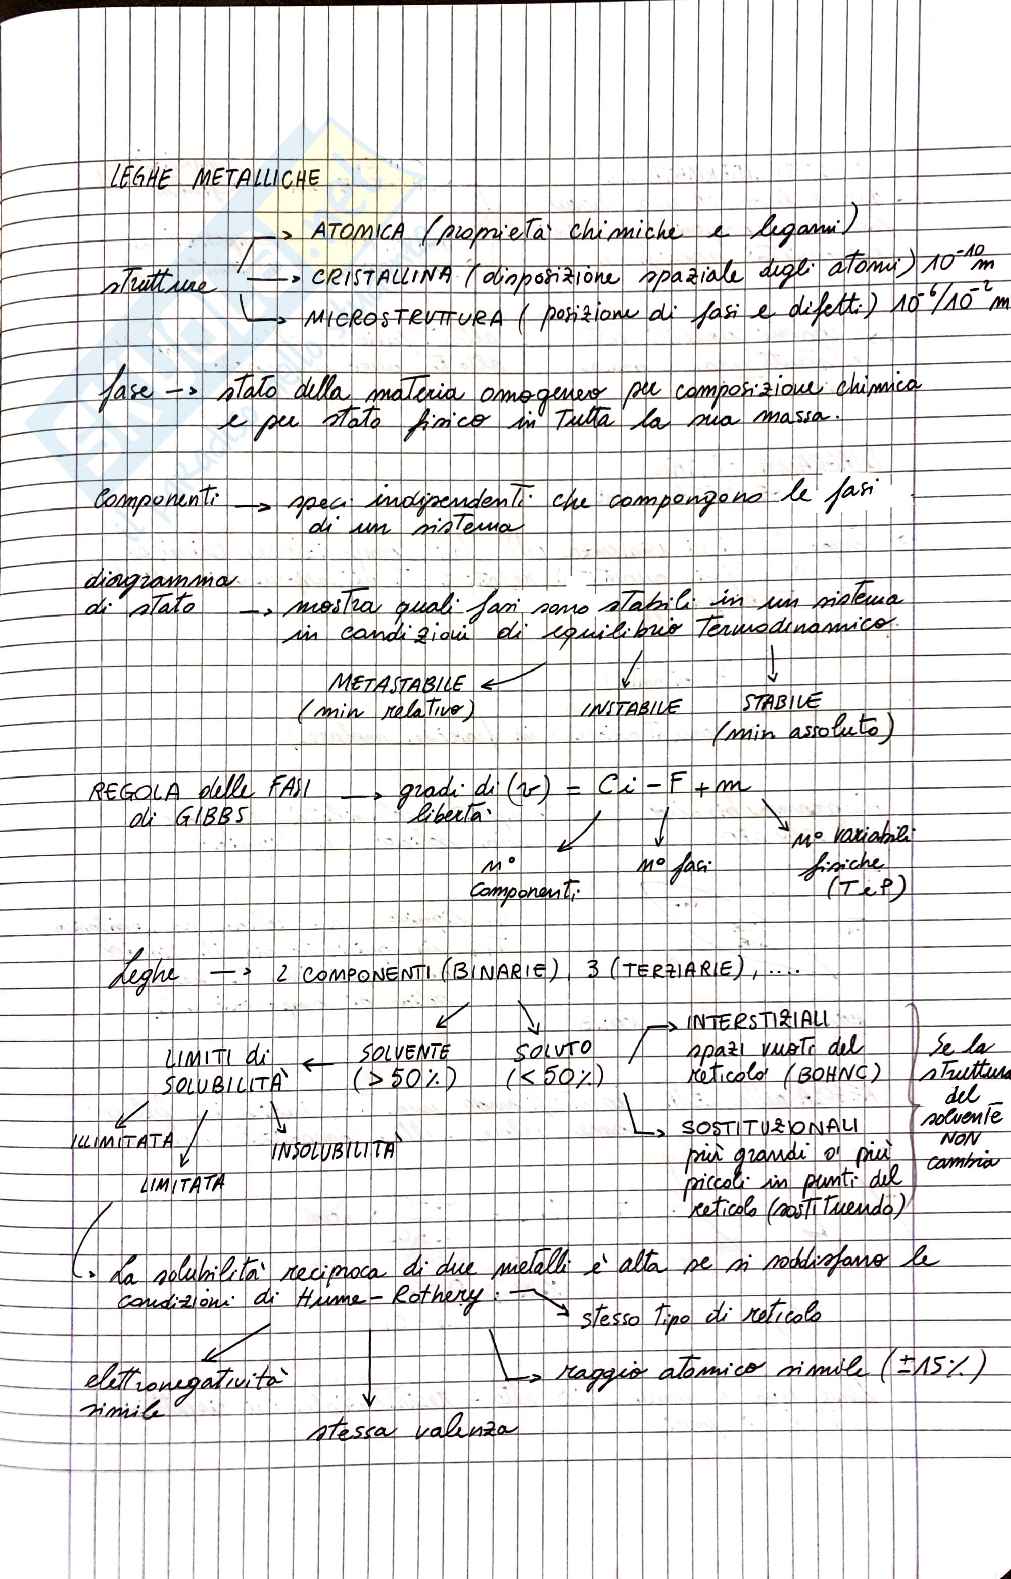 LEGHE METALLICHE
→ ATOMICA (proprietà chimiche e legami)
strutture → CRISTALLINA (disposizione spaziale degli atomi) 10⁻¹⁰ m
→ MICROSTRUTTURA ( posizione di fasi e difetti) 10⁻⁶/10⁻² m
fase → stato della materia omogeneo per composizione chimica
e per stato fisico in tutta la sua massa.
Componenti → speci indipendenti che compongono le fasi
di un sistema
diagramma
di stato → mostra quali fasi sono stabili in un sistema
in condizioni di equilibrio termodinamico.
METASTABILE
(min relativo)
INSTABILE
STABILE
(min assoluto)
REGOLA delle FASI → gradi di (v) = Ci - F + m
di GIBBS libertà
n° componenti
n° fasi
n° variabili
fisiche
(T e P)
Leghe → 2 COMPONENTI (BINARIE), 3 (TERZIARIE), ....
LIMITI di
SOLUBILITÀ
← SOLVENTE
(>50%)
SOLUTO
(<50%)
→ INTERSTIZIALI
spazi vuoti del
reticolo (BOHNC)
→ SOSTITUZIONALI
più grandi o più
piccoli in punti del
reticolo (sostituendo)
Se la
struttura
del
solvente
NON
cambia
ILLIMITATA
LIMITATA
INSOLUBILITÀ
→ La solubilità reciproca di due metalli è alta se si soddisfano le
condizioni di Hume-Rothery:
→ stesso tipo di reticolo
→ raggio atomico simile (±15%)
elettronegatività
simile
stessa valenza